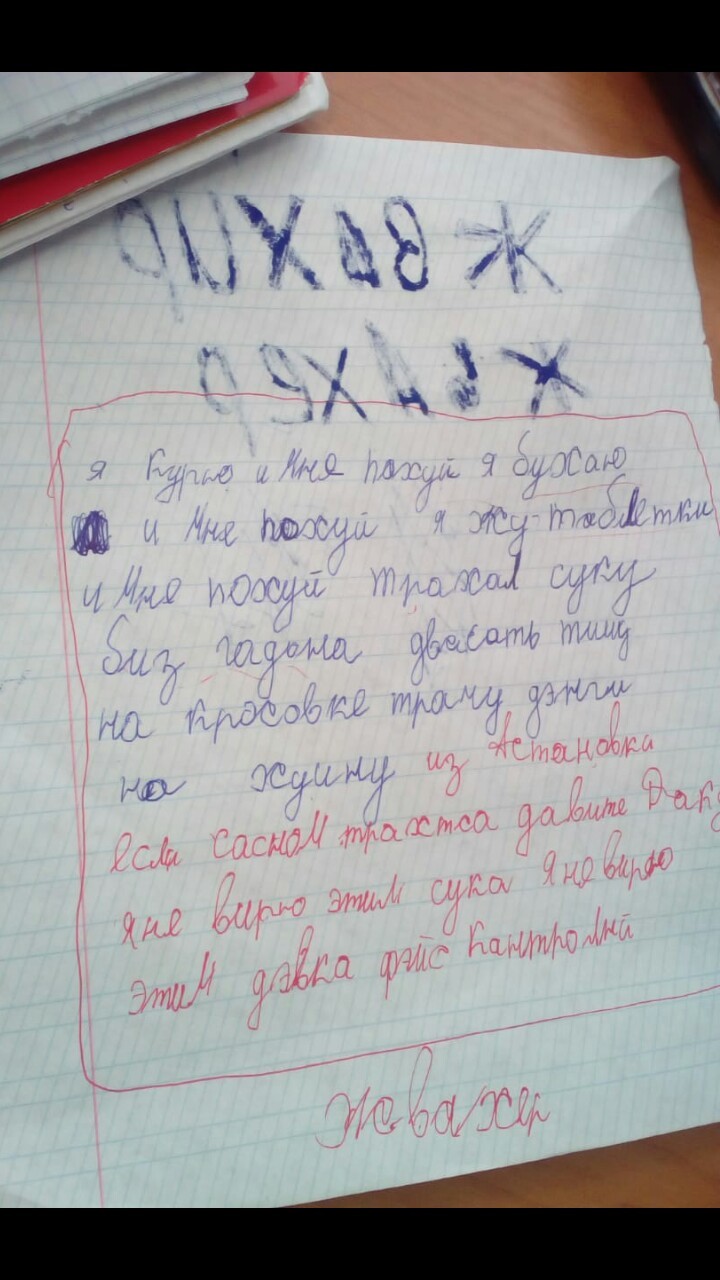 Жвахир
Жвахер
я курю и мне похуй я бухаю
и мне похуй я жу-таблетки
и мне похуй трахал суку
биз гадона двасать тищ
на кросовке трачу дэнги
на хуину из Астановка
если сасном трахтса давите
яне вирю этим сука яневирю
этим дэвка фэйс кантролнй
жвахер